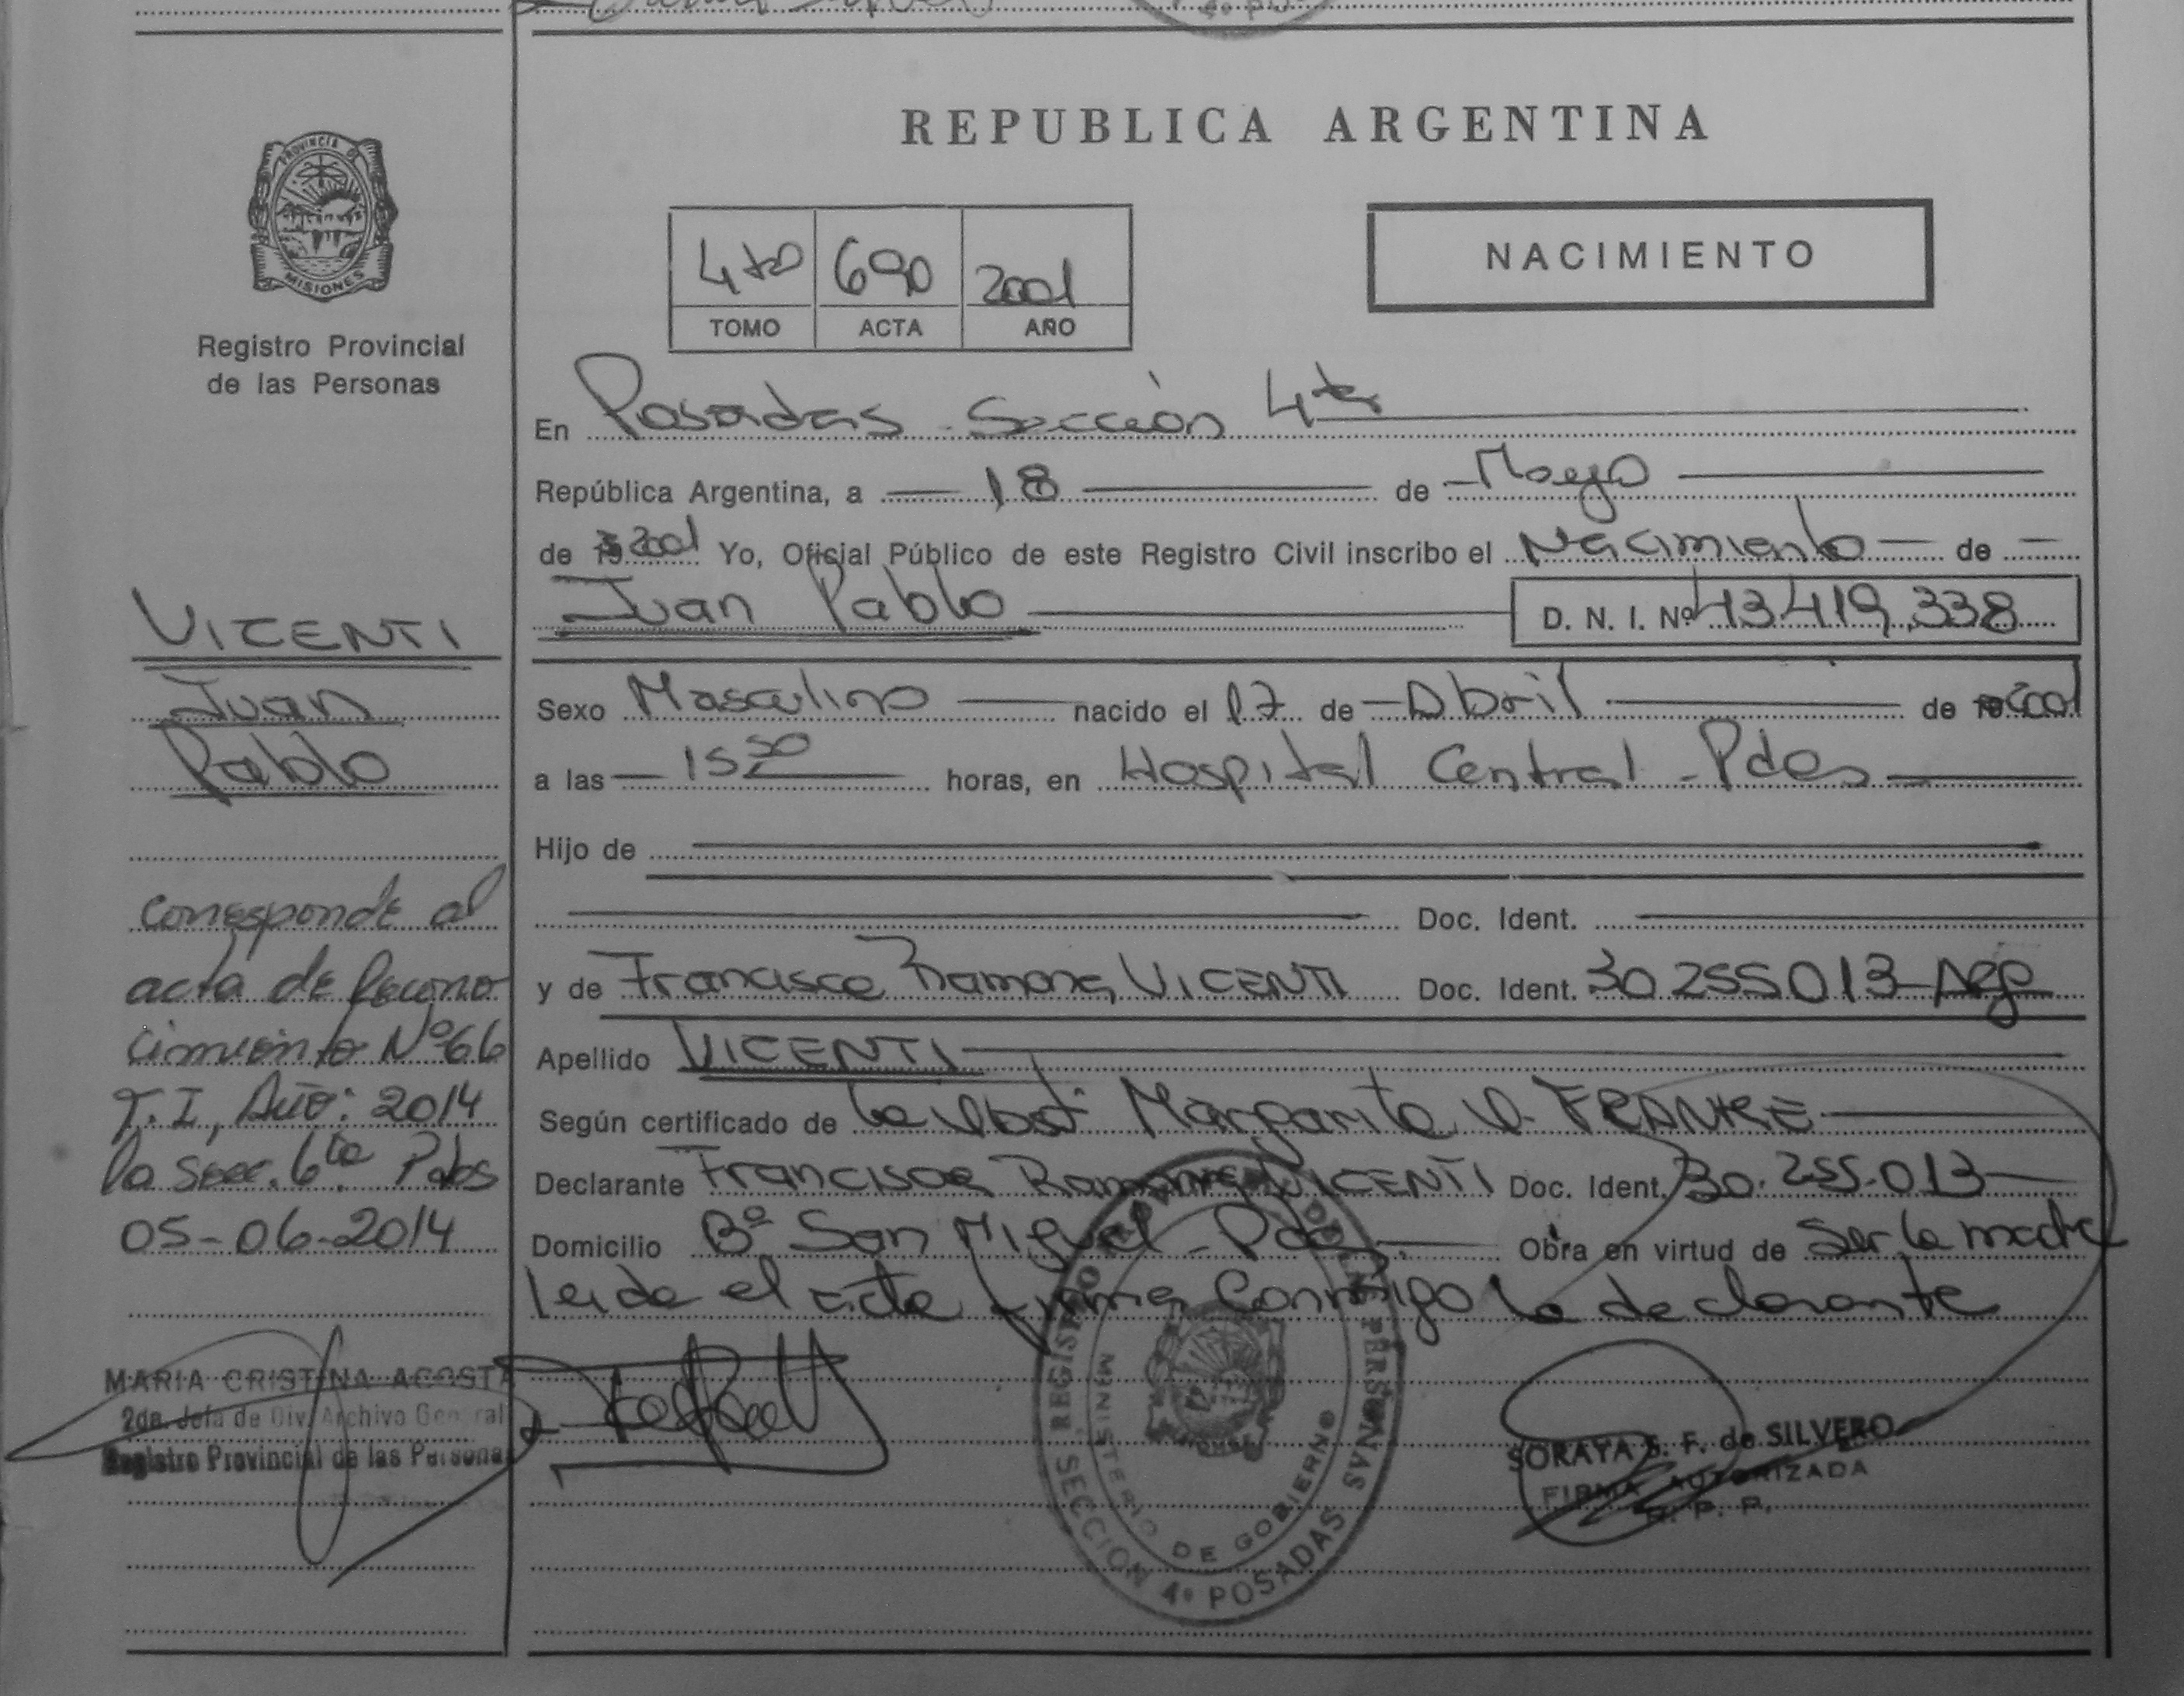 PROVINCIA DE
MISIONES
Registro Provincial
de las Personas
VICENTI
Juan
Pablo
Corresponde al
acta de Recono
cimiento Nº 66
T. I, Año: 2014
la Secc. 6ta Pdas
05-06-2014
MARIA CRISTINA ACOSTA
2da. Jefa de Div. Archivo General
Registro Provincial de las Personas
REPUBLICA ARGENTINA
NACIMIENTO
4to 690 2001
TOMO ACTA AÑO
En Posadas - Sección 4ta
República Argentina, a 18 de Mayo
de 2001 Yo, Oficial Público de este Registro Civil inscribo el Nacimiento de
Juan Pablo D. N. I. Nº 43.419.338
Sexo Masculino nacido el 17 de Abril de 2001
a las 15 50 horas, en Hospital Central - Pdas
Hijo de
Doc. Ident.
y de Francisca Ramona VICENTI Doc. Ident. 30.255.013 - Arg
Apellido VICENTI
Según certificado de la Obst. Margarita FRANKE
Declarante Francisca Ramona VICENTI Doc. Ident. 30.255.013
Domicilio Bº San Miguel - Pdas Obra en virtud de Ser la madre
Leida el acta firma Conmigo la declarante
REGISTRO PROVINCIAL DE LAS PERSONAS
MINISTERIO DE GOBIERNO
SECCION 4º POSADAS
SORAYA S. F. de SILVERO
FIRMA AUTORIZADA
R. P. P.